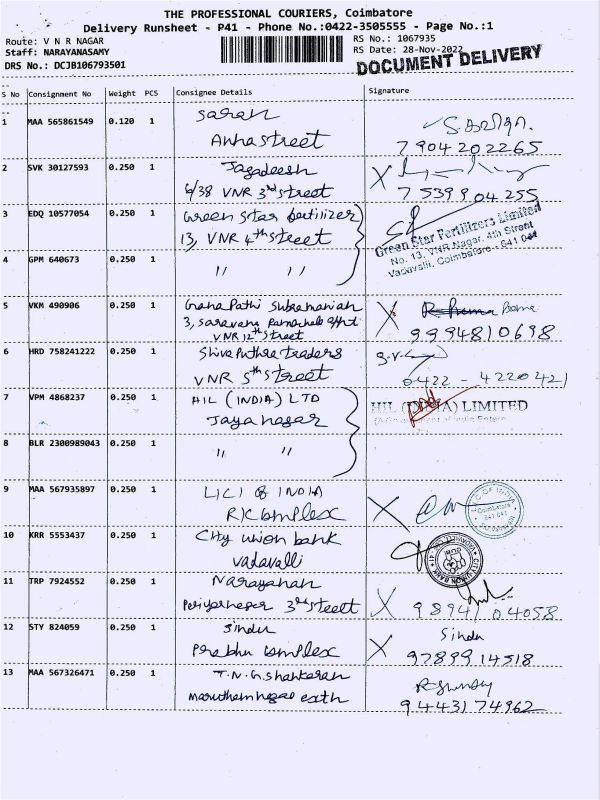 THE PROFESSIONAL COURIERS, Coimbatore
Delivery Runsheet - P41 - Phone No.:0422-3505555 - Page No.:1
Route: V N R NAGAR
RS No.: 1067935
Staff: NARAYANASAMY
RS Date: 28-Nov-2022
DRS No.: DCJB106793501
DOCUMENT DELIVERY
S No Consignment No Weight PCS Consignee Details Signature
1 MAA 565861549 0.120 1 Saran
Anna street
7904202265
2 SVK 30127593 0.250 1 Jagadeesh
6/38 VNR 3rd street
75399 04 255
3 EDQ 10577054 0.250 1 Green Star Fertilizer
13, VNR 4th street
Green Star Fertilizers Limited
No. 13, VNR Nagar, 4th Street
Vadavalli, Coimbatore - 641 041
4 GPM 640673 0.250 1 " "
5 VKM 490906 0.250 1 Ganapathi Subramanian
3, Saravana
VNR 12th street
9994810698
6 HRD 758241222 0.250 1 Shiva Puthra traders
VNR 5th street
0422 - 4220421
7 VPM 4868237 0.250 1 HIL (INDIA) LTD
Jaya nagar
HIL (INDIA) LIMITED
8 BLR 2300989043 0.250 1 " "
9 MAA 567935897 0.250 1 LICI of INDIA
RK Complex
10 KRR 5553437 0.250 1 City union bank
vadavalli
11 TRP 7924552 0.250 1 Narayanan
Periyarnagar 3rd street
98941 04058
12 STY 824059 0.250 1 Sindu
Prabhu complex
Sindu
97899 14518
13 MAA 567326471 0.250 1 T.N.G.Shankaran
maruthamnagar
94431 74962